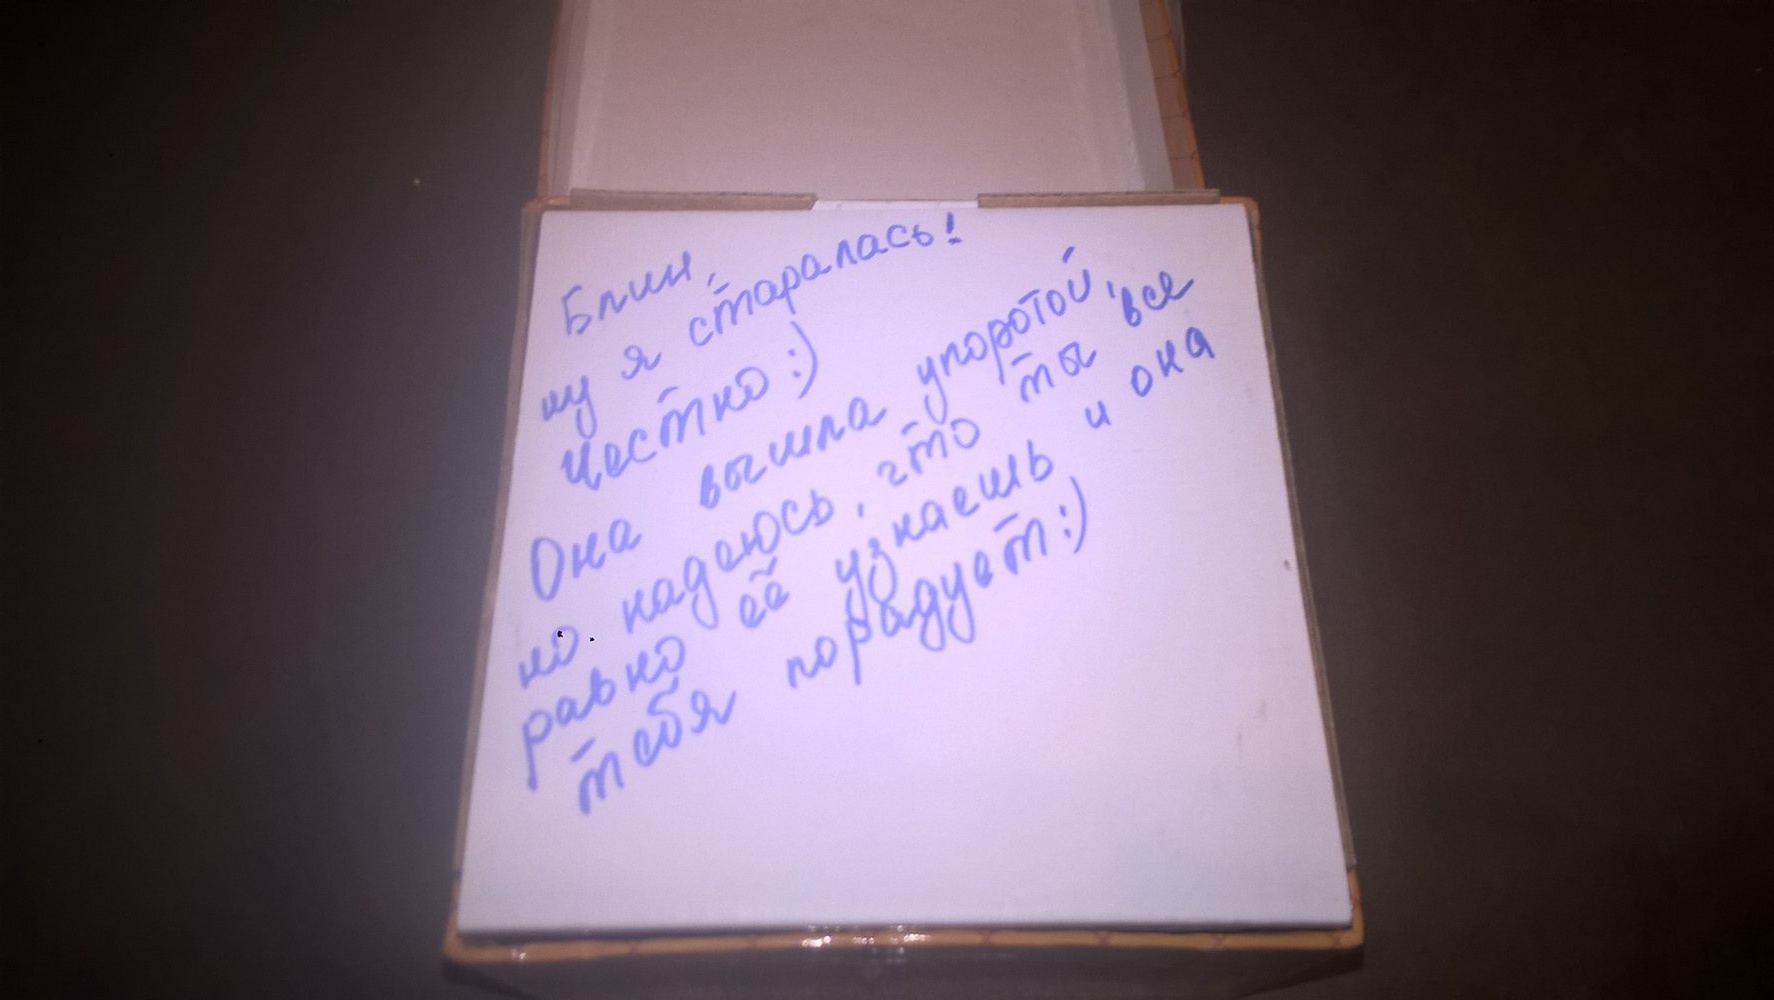 Блин,
ну я старалась!
Честно :)
Она вышла упоротой,
но надеюсь, что ты все
равно её узнаешь и она
тебя порадует :)